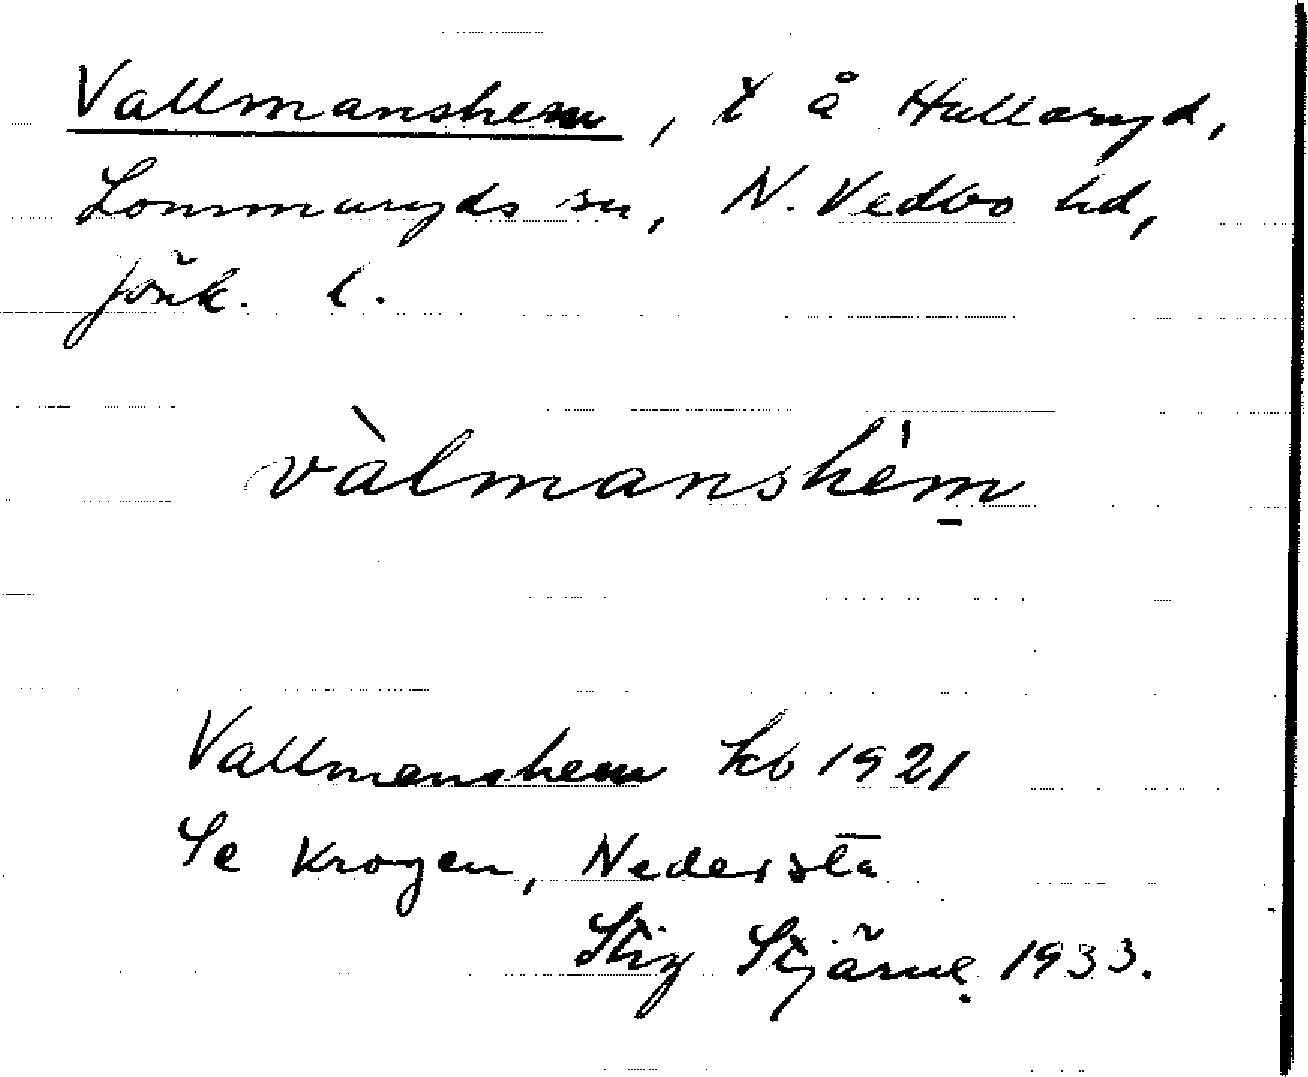 Vallmanshem, t å Hullaryd,
Lommaryds sn, N. Vedbo hd,
Jönk. l.
vàlmanshe̍m
Vallmanshem kb 1921
Se Krogen, Nedersta
Stig Stjärne 1933.